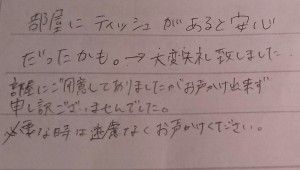 部屋にティッシュがあると安心
だったかも。→大変失礼致しました。
部屋にご用意してありましたがお声がけ出来ず
申し訳ございませんでした。
必要な時は遠慮なくお声がけください。